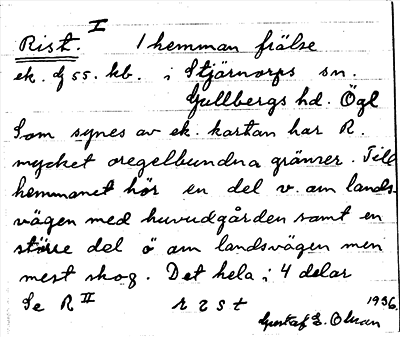 Rist. I 1 hemman frälse
ek. f 55. kb. i Stjärnorps sn.
Gullbergs hd. Ögl
Som synes av ek. kartan har R.
mycket oregelbundna gränser. Till
hemmanet hör en del v. om lands-
vägen med huvudgården samt en
större del ö om landsvägen men
mest skog. Det hela i 4 delar
Se R II r ı s t 1936.
Gustaf E. Olsson